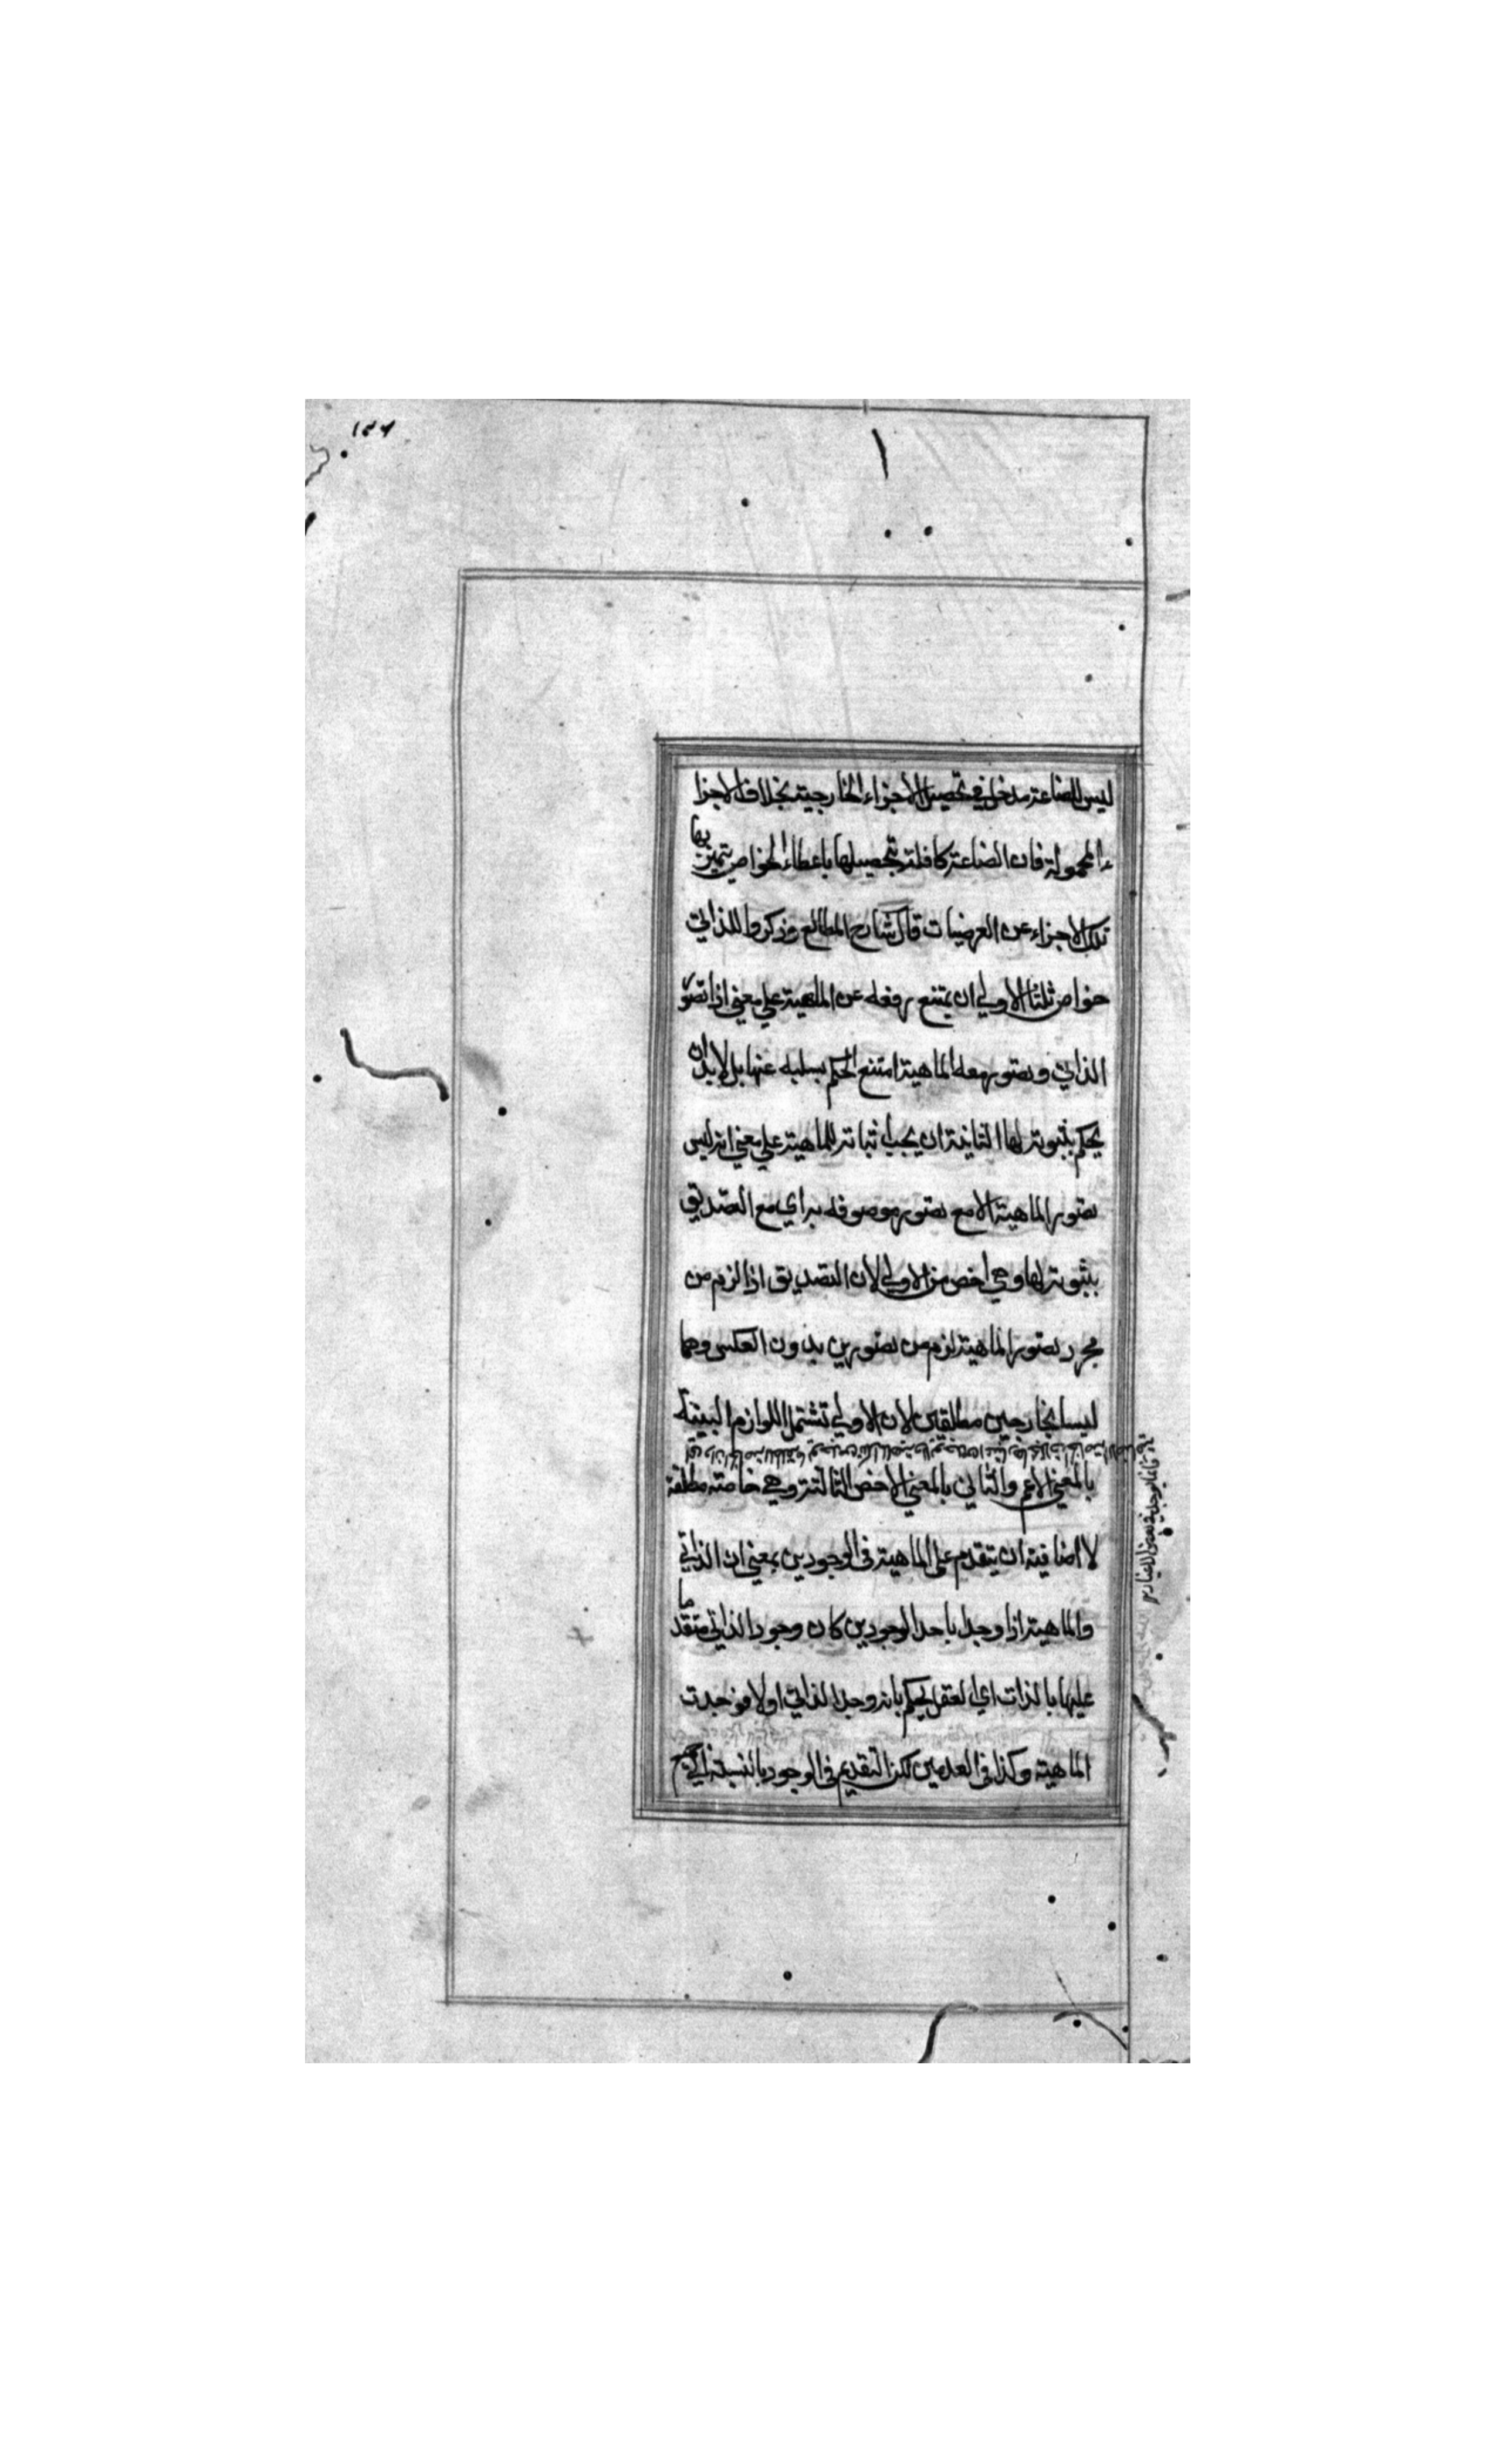 ١٣٤
ليس للصناعة مدخل في تحصيل الاجزاء الخارجية بخلاف الاجزا
ء المحمولة فان الصناعة كافلة بتحصيلها باعطاء الخواص يتميز بها
تلك الاجزاء عن العرضيات قال شارح المطالع وذكروا للذاتي
خواص ثلثا الاولي ان يمتنع رفعه عن الماهية علي معني اذا تصور
الذاتي وتصور معه الماهية امتنع الحكم بسلبه عنها بل لابد ان
يحكم بثبوته لها الثانية ان يجب اثباته للماهية علي معني انه ليس
تصور الماهية الا مع تصور موصوفة به اي مع التصديق
بثبوته لها وهي اخص من الاولي لان التصديق اذا لزم من
مجرد تصور الماهية لزم من تصورين بدون العكس وهما
ليسا بخارجين مطلقين لان الاولي تشتمل اللوازم البينة
بالمعني الاعم والثاني بالمعني الاخص الثالثة وهي خاصة مطلقة
لا اضافية ان يتقدم علي الماهية في الوجودين بمعني ان الذاتي
والماهية اذا وجد باحد الوجودين كان وجود الذاتي متقدما
عليها بالذات اي العقل يحكم بانه وجد الذاتي اولا فوجدت
الماهية وكذا في العدمين لكن التقديم في الوجود بالنسبة الي